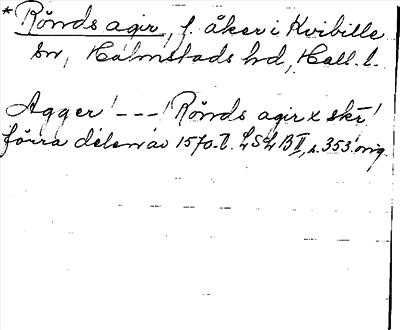 *Rönds agir, f. åker i Kvibille
sn, Halmstads hd, Hall. l.
Agger! --- ! Rönds agir x skr!
förra delen av 1570-t. LSLB II, s. 353 orig